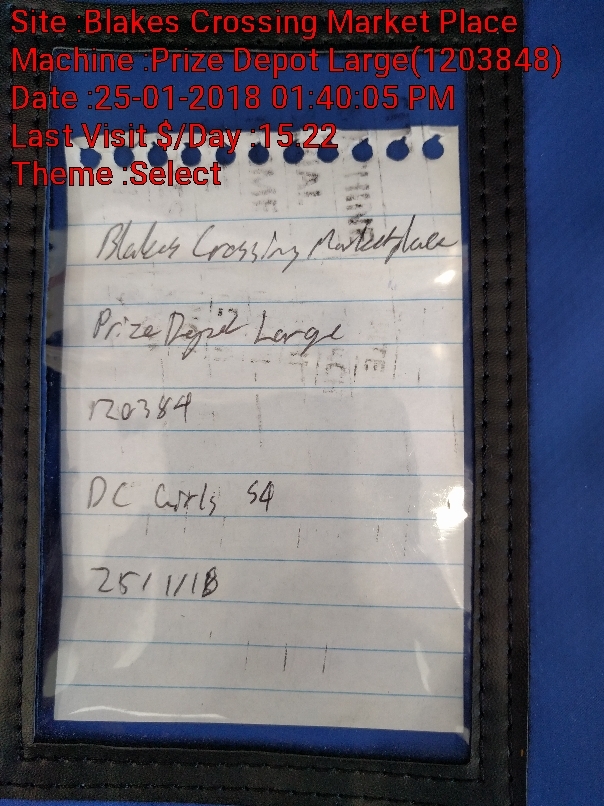 Site :Blakes Crossing Market Place
Machine :Prize Depot Large(1203848)
Date :25-01-2018 01:40:05 PM
Last Visit $/Day :15.22
Theme :Select
Blakes Crossing Marketplace
Prize Depot Large
120384
DC Girls S4
25/1/18